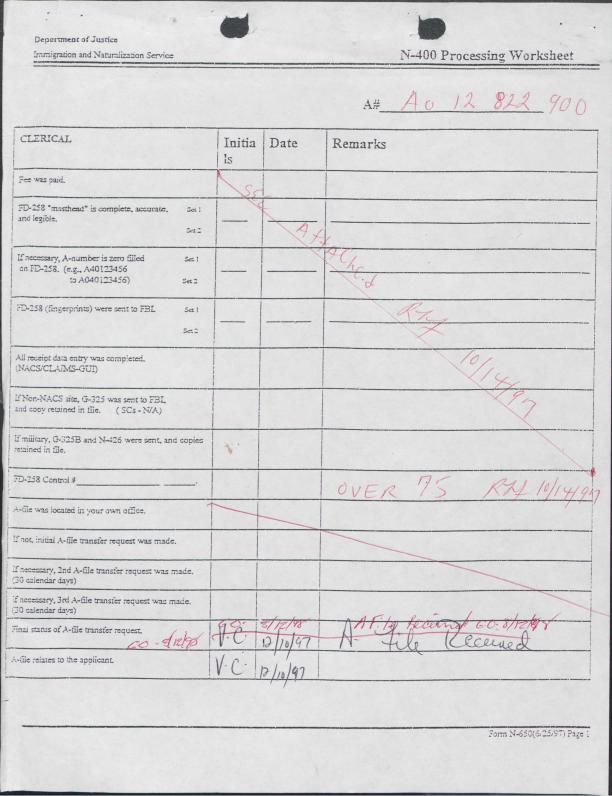 Department of Justice
Immigration and Naturalization Service
N-400 Processing Worksheet
A# A0 12 822 900
CLERICAL
Initia
ls
Date
Remarks
Fee was paid.
SEE ATTAChEd RTF 10/14/97
FD-258 "masthead" is complete, accurate, Set 1
and legible.
Set 2
If necessary, A-number is zero filled Set 1
on FD-258. (e.g., A40123456
to A040123456) Set 2
FD-258 (fingerprints) were sent to FBI. Set 1
Set 2
All receipt data entry was completed.
(NACS/CLAIMS-GUI)
If Non-NACS site, G-325 was sent to FBI,
and copy retained in file. ( SCs - N/A)
If military, G-325B and N-426 were sent, and copies
retained in file.
FD-258 Control #
OVER 75 10/14/97
A-file was located in your own office.
If not, initial A-file transfer request was made.
If necessary, 2nd A-file transfer request was made.
(30 calendar days)
If necessary, 3rd A-file transfer request was made.
(30 calendar days)
Final status of A-file transfer request.
V.C. 12/10/97 A- File Received
A-file relates to the applicant.
V.C. 12/10/97
Form N-650(6/25/97) Page 1